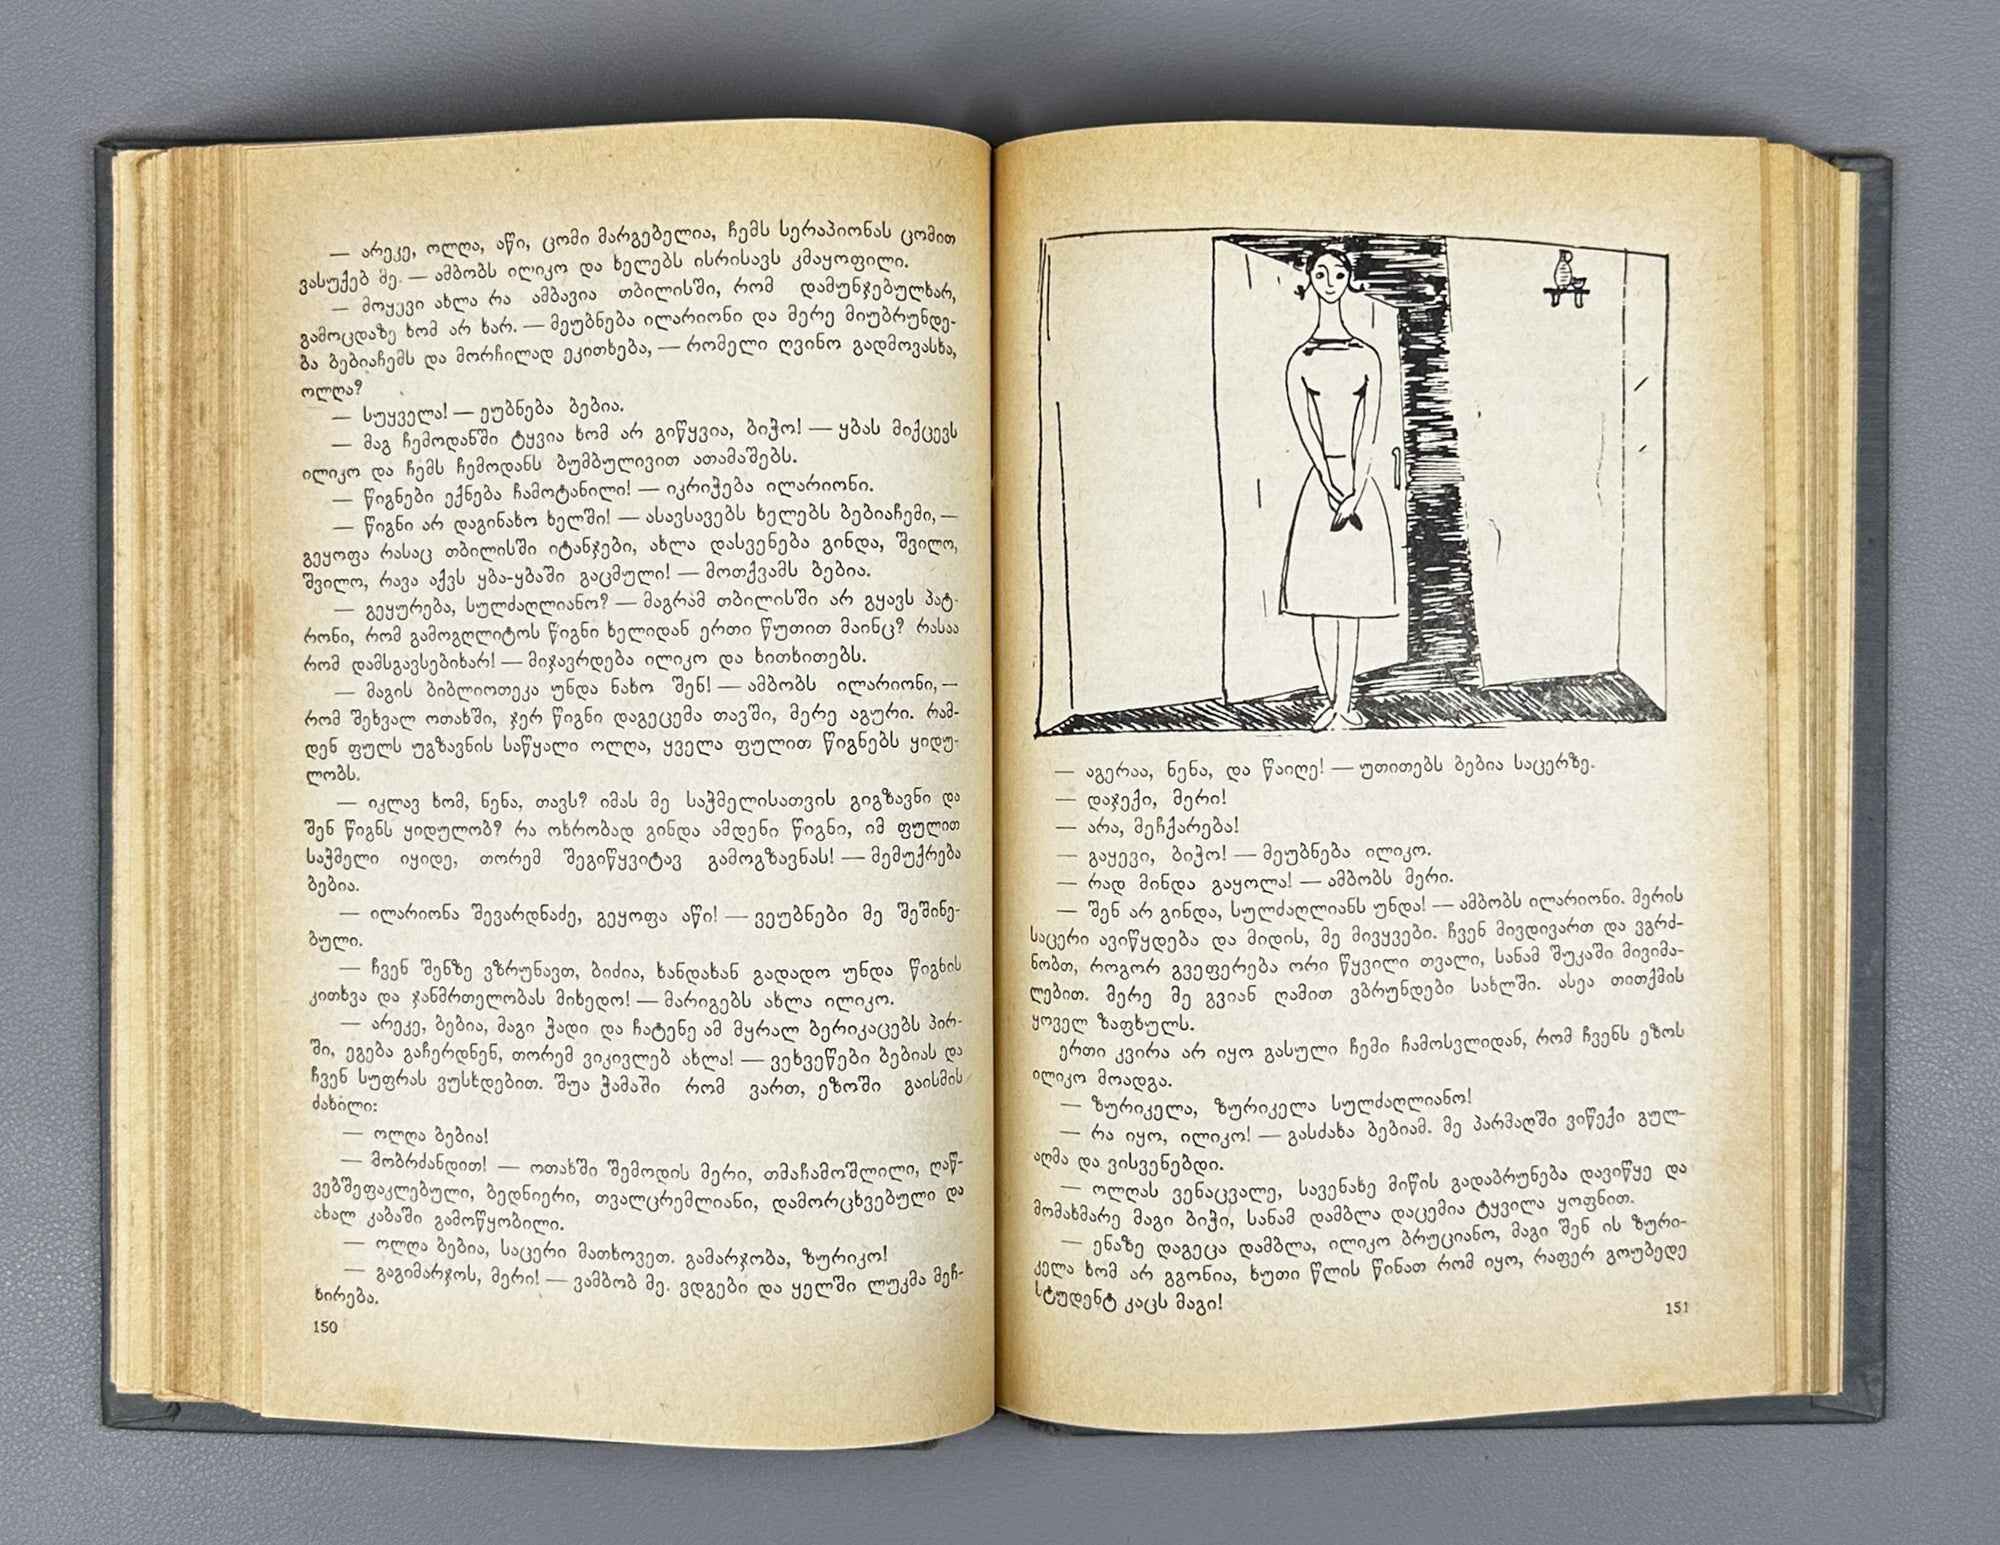 — არეკე, ოლღა, აწი, ცომი მარგებელია, ჩემს სერაპიონას ცომით
ვასუქებ მე. — ამბობს ილიკო და ხელებს ისრისავს კმაყოფილი.
— მოყევი ახლა რა ამბავია თბილისში, რომ დამუნჯებულხარ,
გამოცდაზე ხომ არ ხარ. — მეუბნება ილარიონი და მერე მიუბრუნდე-
ბა ბებიაჩემს და მორჩილად ეკითხება, — რომელი ღვინო გადმოვასხა,
ოლღა?
— სუყველა! — ეუბნება ბებია.
— მაგ ჩემოდანში ტყვია ხომ არ გიწყვია, ბიჭო! — ყბას მიქცევს
ილიკო და ჩემს ჩემოდანს ბუმბულივით ათამაშებს.
— წიგნები ექნება ჩამოტანილი! — იკრიჭება ილარიონი.
— წიგნი არ დაგინახო ხელში! — ასავსავებს ხელებს ბებიაჩემი, —
გეყოფა რასაც თბილისში იტანჯები, ახლა დასვენება გინდა, შვილო,
შვილო, რავა აქვს ყბა-ყბაში გაცმული! — მოთქვამს ბებია.
— გეყურება, სულძაღლიანო? — მაგრამ თბილისში არ გყავს პატ-
რონი, რომ გამოგღლიტოს წიგნი ხელიდან ერთი წუთით მაინც? რასაა
რომ დამსგავსებიხარ! — მიჯავრდება ილიკო და ხითხითებს.
— მაგის ბიბლიოთეკა უნდა ნახო შენ! — ამბობს ილარიონი, —
რომ შეხვალ ოთახში, ჯერ წიგნი დაგეცემა თავში, მერე აგური. რამ-
დენ ფულს უგზავნის საწყალი ოლღა, ყველა ფულით წიგნებს ყიდუ-
ლობს.
— იკლავ ხომ, ნენა, თავს? იმას მე საჭმელისათვის გიგზავნი და
შენ წიგნს ყიდულობ? რა ოხრობად გინდა ამდენი წიგნი, იმ ფულით
საჭმელი იყიდე, თორემ შეგიწყვიტავ გამოგზავნას! — მემუქრება
ბებია.
— ილარიონა შევარდნაძე, გეყოფა აწი! — ვეუბნები მე შეშინე-
ბული.
— ჩვენ შენზე ვზრუნავთ, ბიძია, ხანდახან გადადო უნდა წიგნის
კითხვა და ჯანმრთელობას მიხედო! — მარიგებს ახლა ილიკო.
— არეკე, ბებია, მაგი ჭადი და ჩატენე ამ მყრალ ბერიკაცებს პირ-
ში, ეგება გაჩერდნენ, თორემ ვიკივლებ ახლა! — ვეხვეწები ბებიას და
ჩვენ სუფრას ვუსხდებით. შუა ჭამაში რომ ვართ, ეზოში გაისმის
ძახილი:
— ოლღა ბებია!
— მობრძანდით! — ოთახში შემოდის მერი, თმაჩამოშლილი, ღაწ-
ვებშეფაკლებული, ბედნიერი, თვალცრემლიანი, დამორცხვებული და
ახალ კაბაში გამოწყობილი.
— ოლღა ბებია, საცერი მათხოვეთ. გამარჯობა, ზურიკო!
— გაგიმარჯოს, მერი! — ვამბობ მე. ვდგები და ყელში ლუკმა მეჩ-
ხირება.
150
— აგერაა, ნენა, და წაიღე! — უთითებს ბებია საცერზე.
— დაჯექი, მერი!
— არა, მეჩქარება!
— გაყევი, ბიჭო! — მეუბნება ილიკო.
— რად მინდა გაყოლა! — ამბობს მერი.
— შენ არ გინდა, სულძაღლიანს უნდა! — ამბობს ილარიონი. მერის
საცერი ავიწყდება და მიდის, მე მივყვები. ჩვენ მივდივართ და ვგრძ-
ნობთ, როგორ გვეფერება ორი წყვილი თვალი, სანამ შუკაში მივიმა-
ლებით. მერე მე გვიან ღამით ვბრუნდები სახლში. ასეა თითქმის
ყოველ ზაფხულს.
ერთი კვირა არ იყო გასული ჩემი ჩამოსვლიდან, რომ ჩვენს ეზოს
ილიკო მოადგა.
— ზურიკელა, ზურიკელა სულძაღლიანო!
— რა იყო, ილიკო! — გასძახა ბებიამ. მე პარმაღში ვიწექი გულ-
აღმა და ვისვენებდი.
— ოლღას ვენაცვალე, სავენახე მიწის გადაბრუნება დავიწყე და
მომახმარე მაგი ბიჭი, სანამ დამბლა დაცემია ტყვილა ყოფნით.
— ენაზე დაგეცა დამბლა, ილიკო ბრუციანო, მაგი შენ ის ზური-
კელა ხომ არ გგონია, ხუთი წლის წინათ რომ იყო, რაფერ გოუბედე
სტუდენტ კაცს მაგი!
151